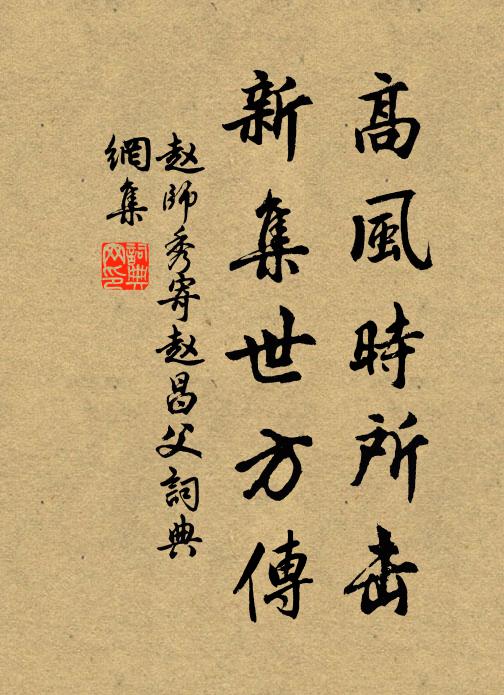 高風時所
新集世方傳
趙師秀寄趙昌父詞典
網集
詞典
网印